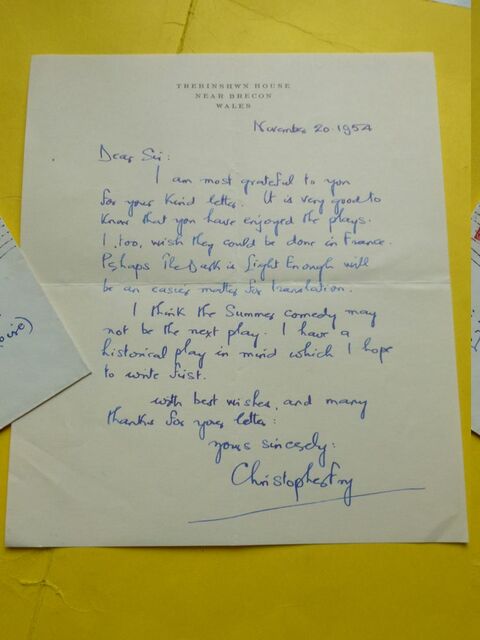 TREBINSHWN HOUSE
NEAR BRECON
WALES
November 20. 1954
Dear Sir:
I am most grateful to you
for your kind letter. It is very good to
know that you have enjoyed the plays.
I, too, wish they could be done in France.
Perhaps The Dark is Light Enough will
be an easier matter for translation.
I think the Summer comedy may
not be the next play. I have a
historical play in mind which I hope
to write first.
With best wishes, and many
thanks for your letter:
yours sincerely:
Christopher Fry